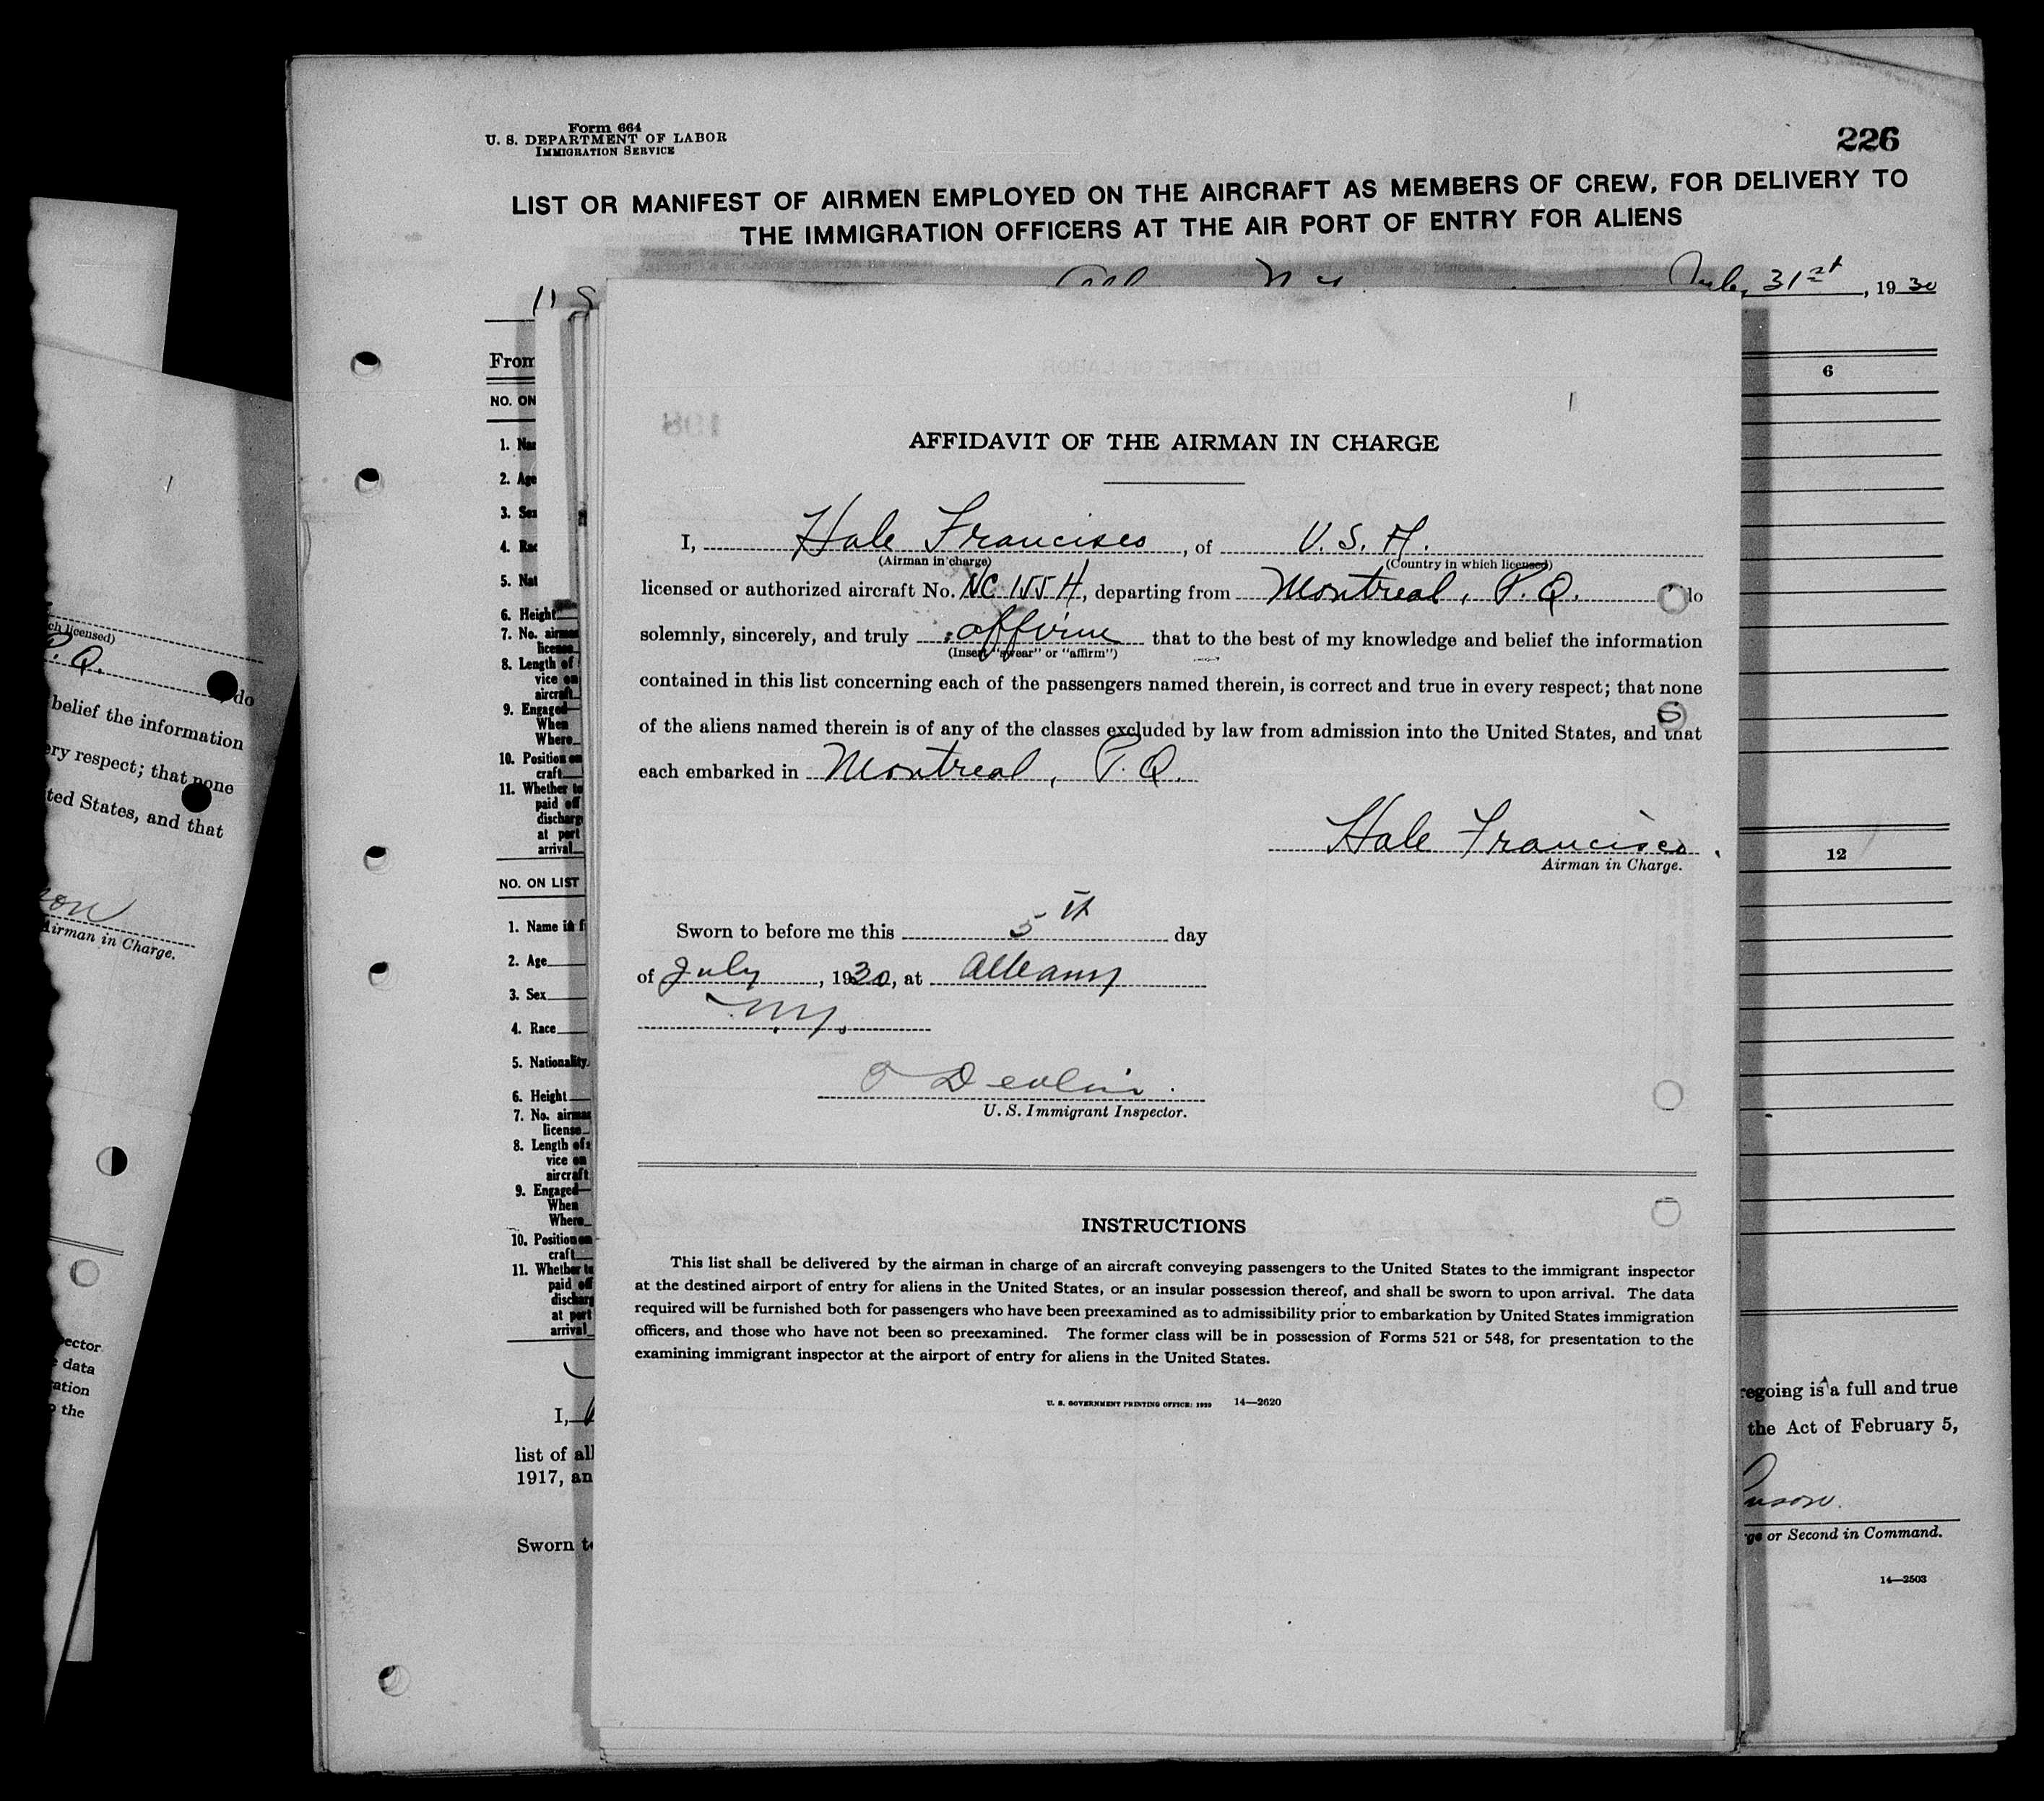 Form 664
U. S. DEPARTMENT OF LABOR
IMMIGRATION SERVICE
226
LIST OR MANIFEST OF AIRMEN EMPLOYED ON THE AIRCRAFT AS MEMBERS OF CREW, FOR DELIVERY TO
THE IMMIGRATION OFFICERS AT THE AIR PORT OF ENTRY FOR ALIENS
July 31st, 1930
From
NO. ON
1. Na
2. Age
3. Sex
4. Rac
5. Nat
6. Height
7. No. airman
license
8. Length of
vice on
aircraft
9. Engaged
When
Where
10. Position on
craft
11. Whether to
paid off
discharg
at port
arrival
NO. ON LIST
1. Name in f
2. Age
3. Sex
4. Race
5. Nationality
6. Height
7. No. airman
license
8. Length of s
vice on
aircraft
9. Engaged
When
Where
10. Position on
craft
11. Whether to
paid off
discharg
at port
arrival
I,
list of all
1917, an
Sworn to
6
12
regoing is a full and true
the Act of February 5,
nson.
ge or Second in Command.
14—2503
AFFIDAVIT OF THE AIRMAN IN CHARGE
I, Hale Francisco, of U. S. A.
(Airman in charge) (Country in which licensed)
licensed or authorized aircraft No. NC 155 H, departing from Montreal, P. Q. do
solemnly, sincerely, and truly affirm that to the best of my knowledge and belief the information
(Insert "swear" or "affirm")
contained in this list concerning each of the passengers named therein, is correct and true in every respect; that none
of the aliens named therein is of any of the classes excluded by law from admission into the United States, and that
each embarked in Montreal, P. Q.
Hale Francisco.
Airman in Charge.
Sworn to before me this 5th day
of July, 1930, at Albany
N.Y.
O Devlin.
U. S. Immigrant Inspector.
INSTRUCTIONS
This list shall be delivered by the airman in charge of an aircraft conveying passengers to the United States to the immigrant inspector
at the destined airport of entry for aliens in the United States, or an insular possession thereof, and shall be sworn to upon arrival. The data
required will be furnished both for passengers who have been preexamined as to admissibility prior to embarkation by United States immigration
officers, and those who have not been so preexamined. The former class will be in possession of Forms 521 or 548, for presentation to the
examining immigrant inspector at the airport of entry for aliens in the United States.
U. S. GOVERNMENT PRINTING OFFICE: 1929 14—2620
ch licensed)
P. Q. do
belief the information
ery respect; that none
ted States, and that
son
Airman in Charge.
pector
e data
ration
o the